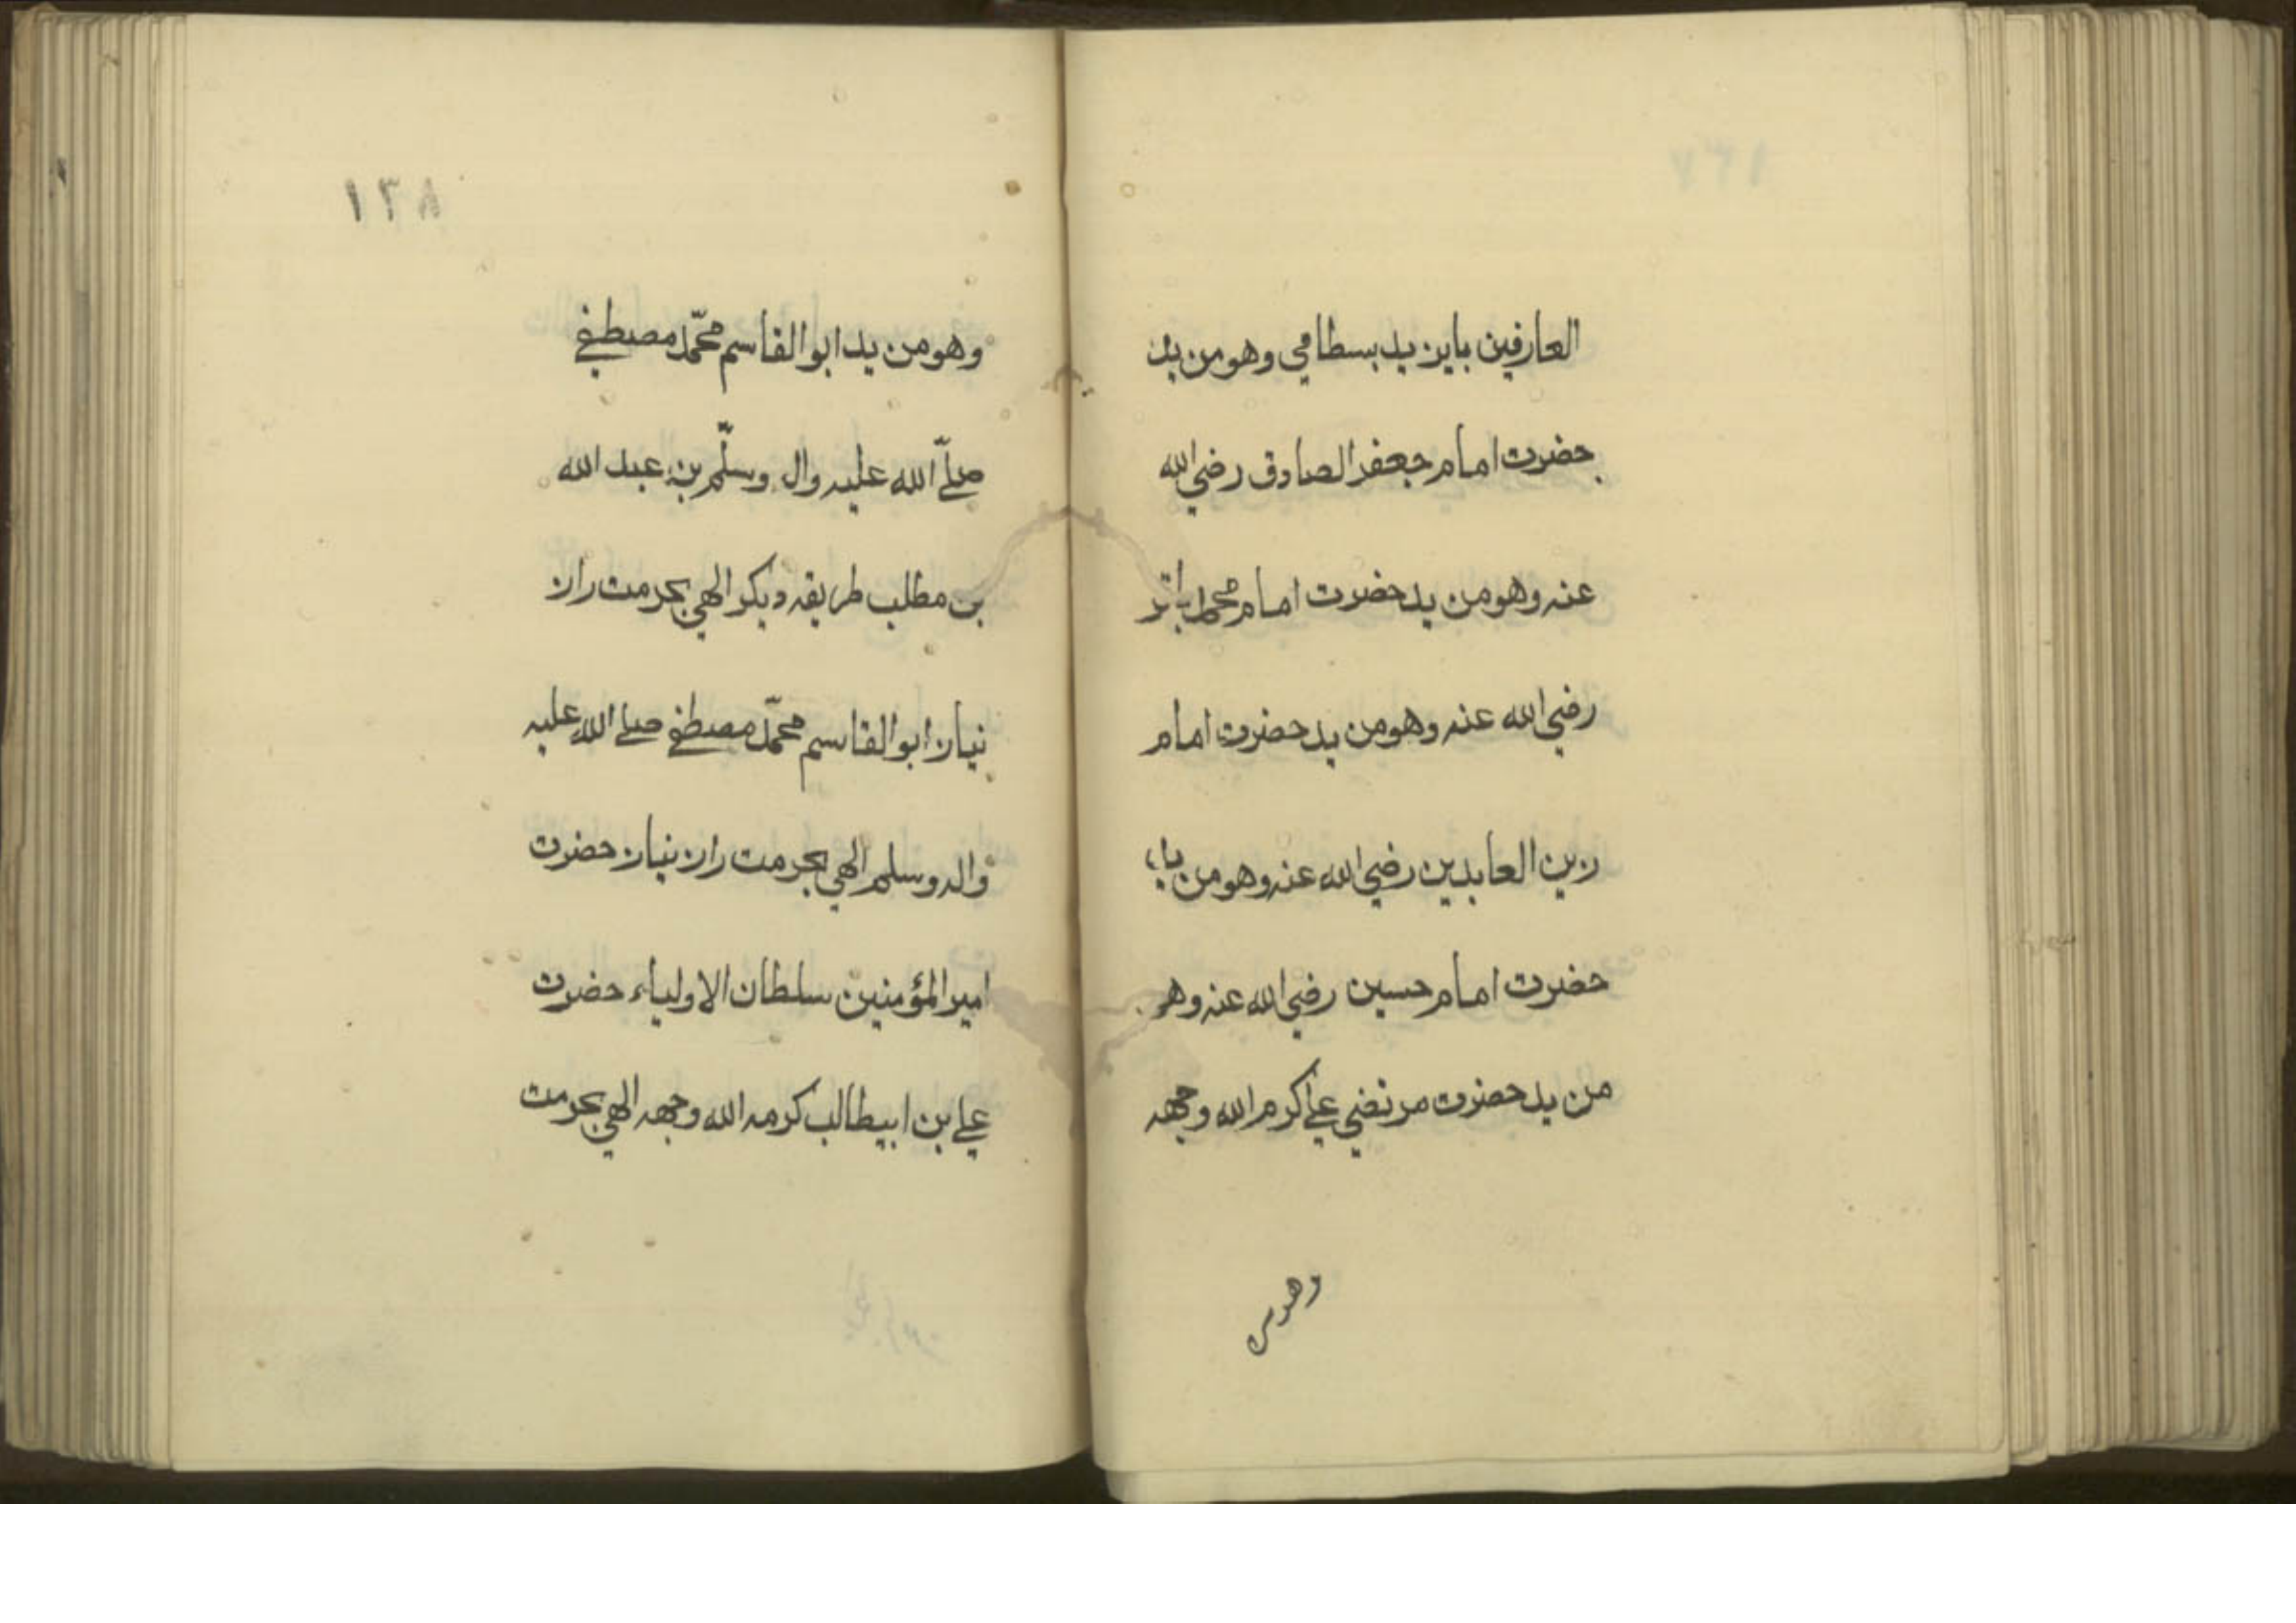 العارفين بايزيد بسطامي وهو من يد
حضرت امام جعفر الصادق رضي الله
عنه وهو من يد حضرت امام محمد باقر
رضي الله عنه وهو من يد حضرت امام
زين العابدين رضي الله عنه وهو من
حضرت امام حسين رضي الله عنه وهو
من يد حضرت مرتضي علي كرم الله وجهه
وهو من
١٣٨
وهو من يد ابو القاسم محمّد مصطفي
صلّي الله عليه وال وسلّم بن عبد الله
بن مطلب طريقه ديكر الهي بحرمت راز
نياز ابو القاسم محمّد مصطفي صلي الله عليه
واله وسلم الهي بحرمت راز نياز حضرت
امير المؤمنين سلطان الاولياء حضرت
علي بن ابيطالب كرمه الله وجهه الهي بحرمت